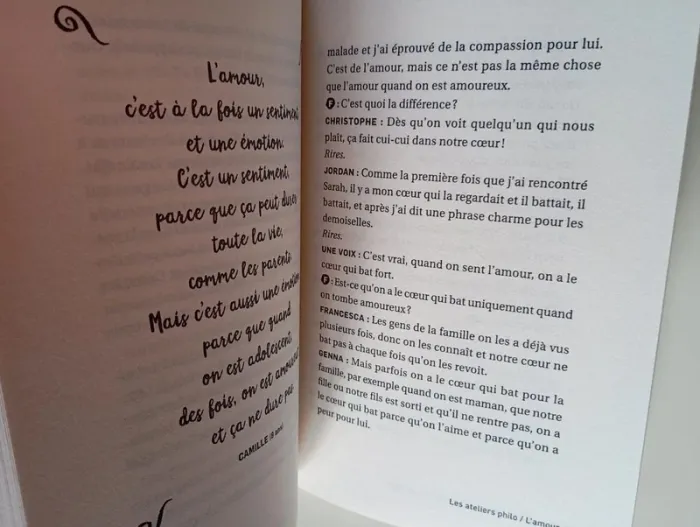 L'amour,
c'est à la fois un sentiment
et une émotion.
C'est un sentiment,
parce que ça peut durer
toute la vie,
comme les parents.
Mais c'est aussi une émotion
parce que quand
on est adolescent,
des fois, on est amoureux
et ça ne dure pas.
CAMILLE
malade et j'ai éprouvé de la compassion pour lui.
C'est de l'amour, mais ce n'est pas la même chose
que l'amour quand on est amoureux.
F : C'est quoi la différence ?
CHRISTOPHE : Dès qu'on voit quelqu'un qui nous
plaît, ça fait cui-cui dans notre cœur !
Rires.
JORDAN : Comme la première fois que j'ai rencontré
Sarah, il y a mon cœur qui la regardait et il battait, il
battait, et après j'ai dit une phrase charme pour les
demoiselles.
Rires.
UNE VOIX : C'est vrai, quand on sent l'amour, on a le
cœur qui bat fort.
F : Est-ce qu'on a le cœur qui bat uniquement quand
on tombe amoureux ?
FRANCESCA : Les gens de la famille on les a déjà vus
plusieurs fois, donc on les connaît et notre cœur ne
bat pas à chaque fois qu'on les revoit.
GENNA : Mais parfois on a le cœur qui bat pour la
famille, par exemple quand on est maman, que notre
fille ou notre fils est sorti et qu'il ne rentre pas, on a
le cœur qui bat parce qu'on l'aime et parce qu'on a
peur pour lui.
Les ateliers philo / L'amour